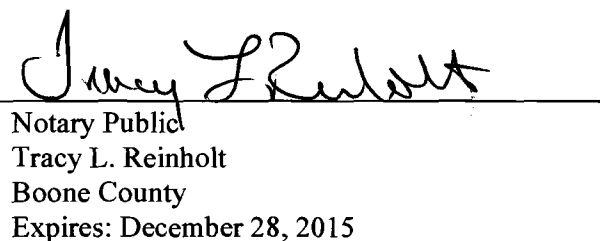 Tracy L Reinholt
Notary Public
Tracy L. Reinholt
Boone County
Expires: December 28, 2015